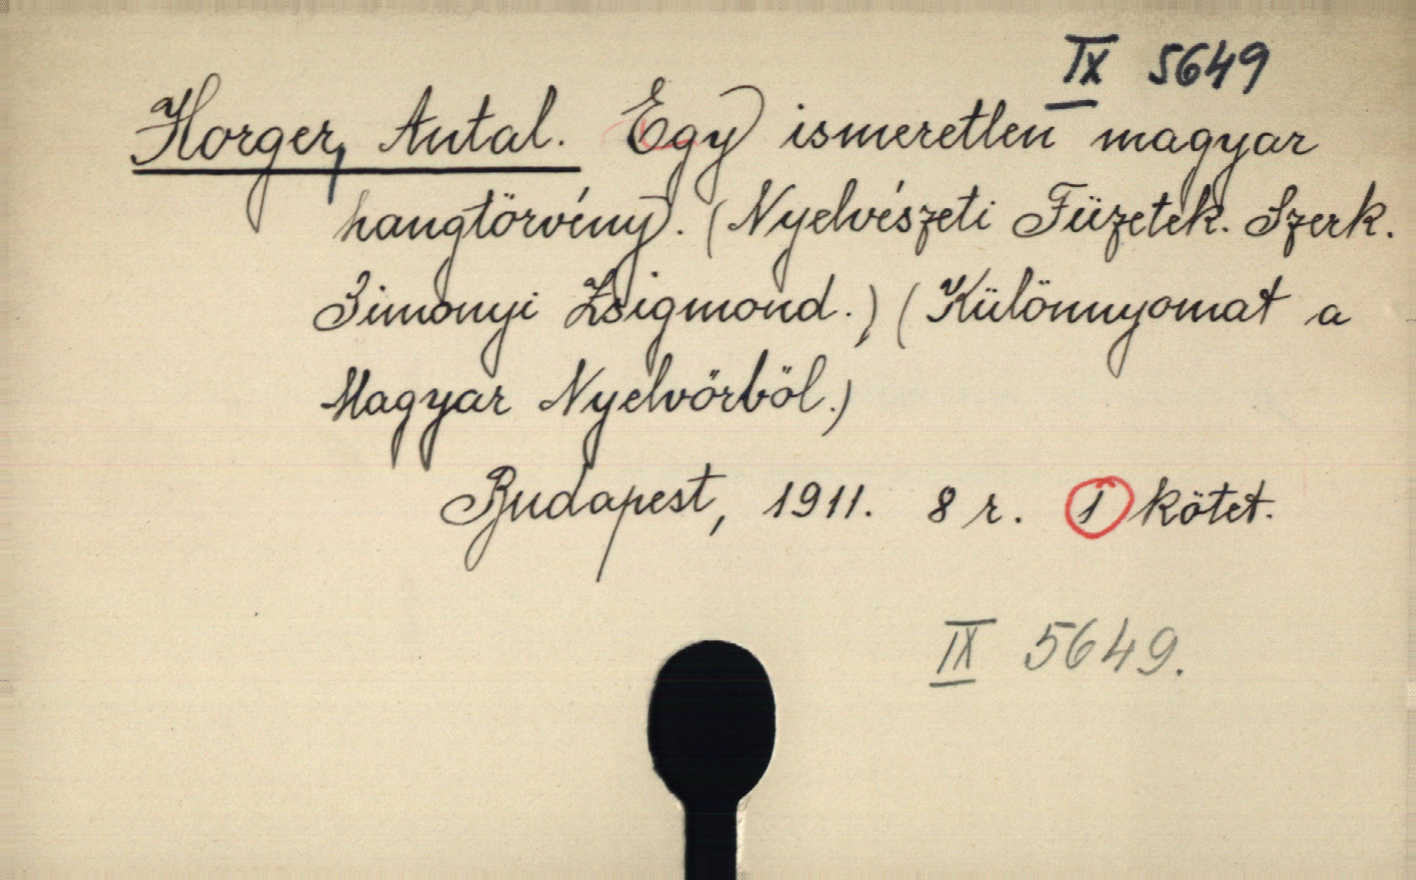 IX 5649
Horger, Antal. Egy ismeretlen magyar
hangtörvény. (Nyelvészeti Füzetek. Szerk.
Simonyi Zsigmond.) (Különnyomat a
Magyar Nyelvőrből.)
Budapest, 1911. 8 r. 1 kötet.
IX 5649.